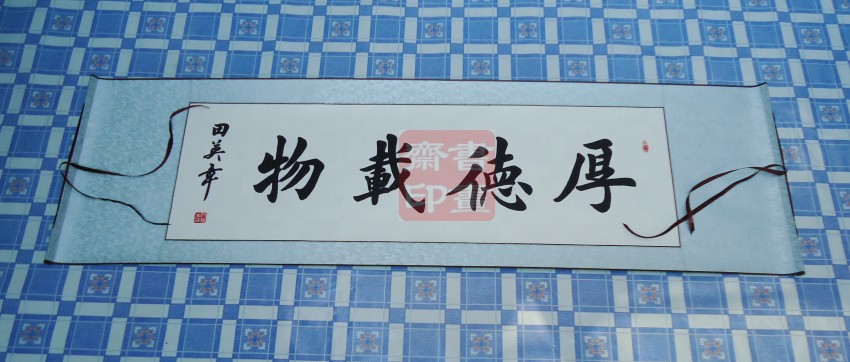 厚德載物
田英章
書畫
齋印